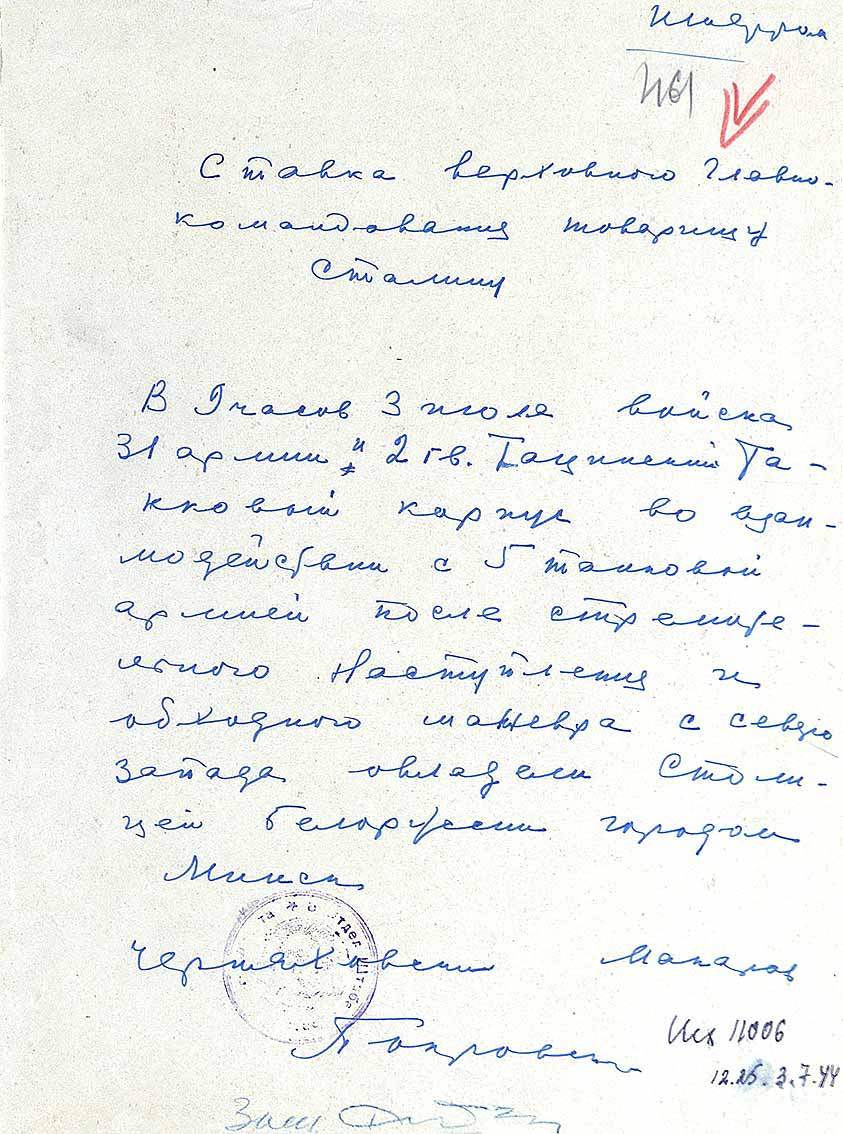 шифром
1161
Ставка верховного Главно-
командования товарищу
Сталину
В 9 часов 3 июля войска
31 армии и 2 гв. Тацинский Та-
нковый корпус во взаи-
модействии с 5 танковой
армией после стремите-
льного наступления и
обходного маневра с северо
запада овладели Столи-
цей белоруссии городом
Минск
Черняховский Макаров
Покровский
отдел штаба
Исх 11006
12.25. 3.7.44